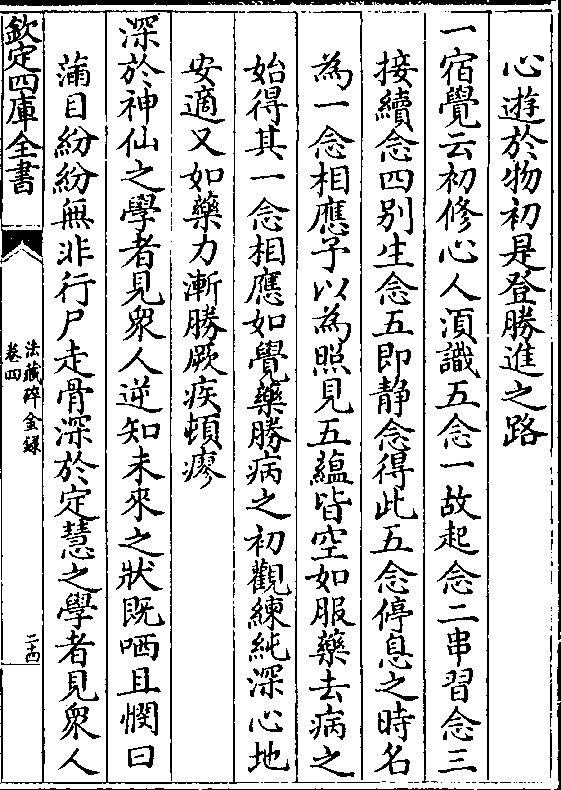 心遊於物初是登勝進之路
一宿覺云初修心人湏識五念一故起念二串習念三
接續念四別生念五即静念得此五念停息之時名
為一念相應予以為照見五藴皆空如服藥去病之
始得其一念相應如覺藥勝病之初觀練純深心地
安適又如藥力漸勝厥疾頓瘳
深於神仙之學者見衆人逆知未來之狀既哂且憫曰
蒲目紛紛無非行尸走骨深於定慧之學者見衆人
欽定四庫全書
法藏碎金錄
卷四
二十四